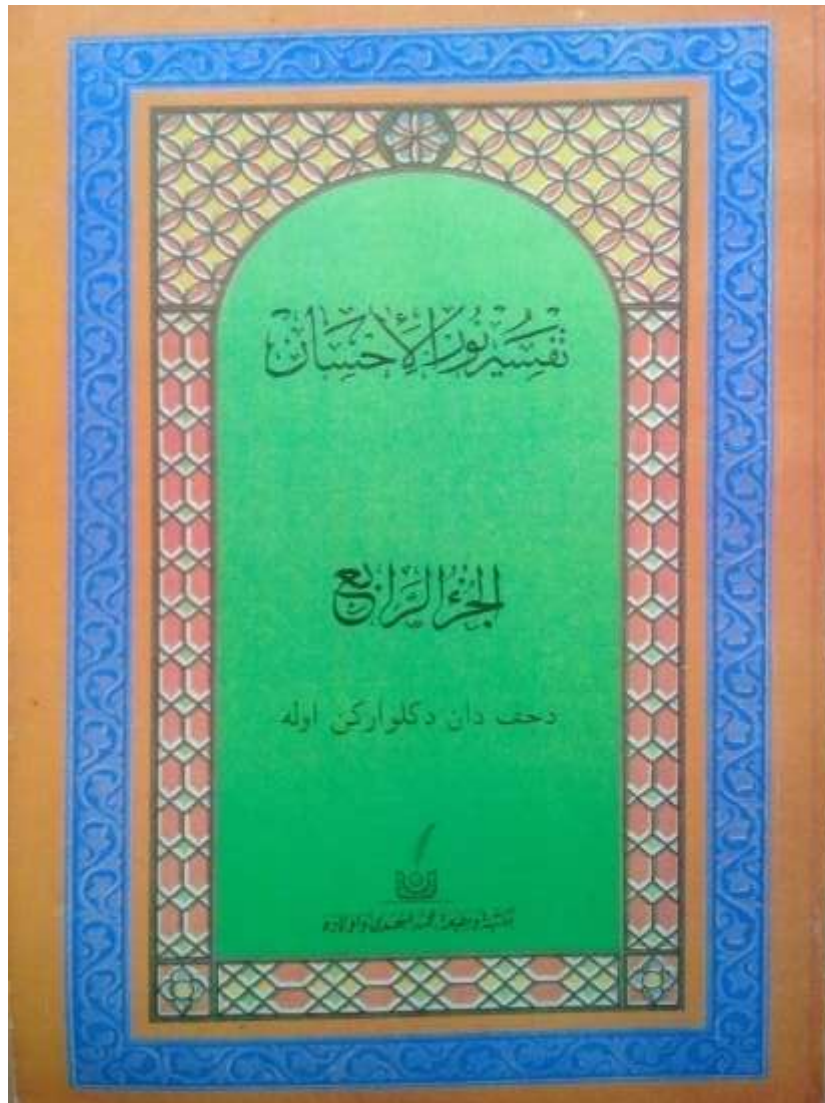 تَفْسِيْر نُوْرُ الْأِحْسَان
الجُزْءُ الرَّابِع
دحڤ دان دكلواركن اوله
مكتبة ومطبعة محمد النهدي واولاده